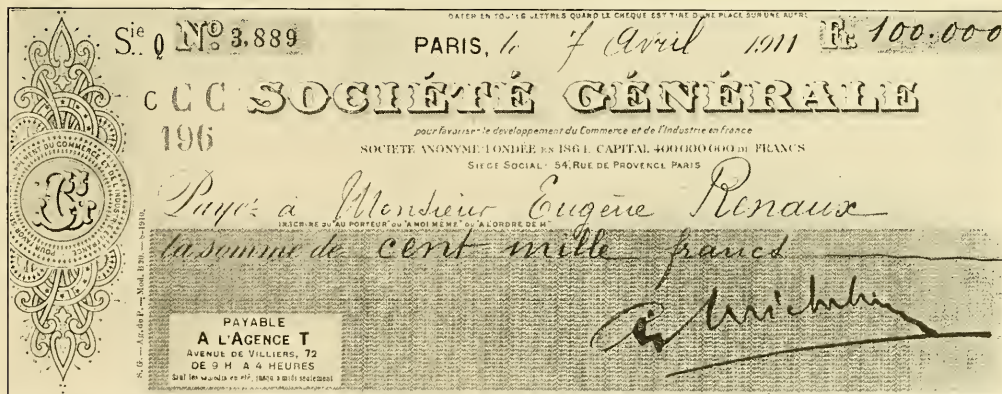 DATER EN TOUTES LETTRES QUAND LE CHEQUE EST TIRÉ D'UNE PLACE SUR UNE AUTRE
Sie Q No 3,889 PARIS, le 7 Avril 1911 Fr. 100.000
C C C SOCIÉTÉ GÉNÉRALE
196
pour favoriser le développement du Commerce et de l'Industrie en France
SOCIÉTÉ ANONYME FONDÉE EN 1864. CAPITAL 400.000.000 DE FRANCS
SIÈGE SOCIAL: 54, RUE DE PROVENCE, PARIS
Payez à Monsieur Eugène Renaux
INSCRIRE OU "AU PORTEUR" OU "A MOI MEME" OU "A L'ORDRE DE M
la somme de cent mille francs
Michelin
PAYABLE
A L'AGENCE T
AVENUE DE VILLIERS, 72
DE 9 H A 4 HEURES
Sauf les samedis en été, jusqu'à midi seulement
S. G. — Ag. de P. — Mod. B 20. — 8-1910.
SG